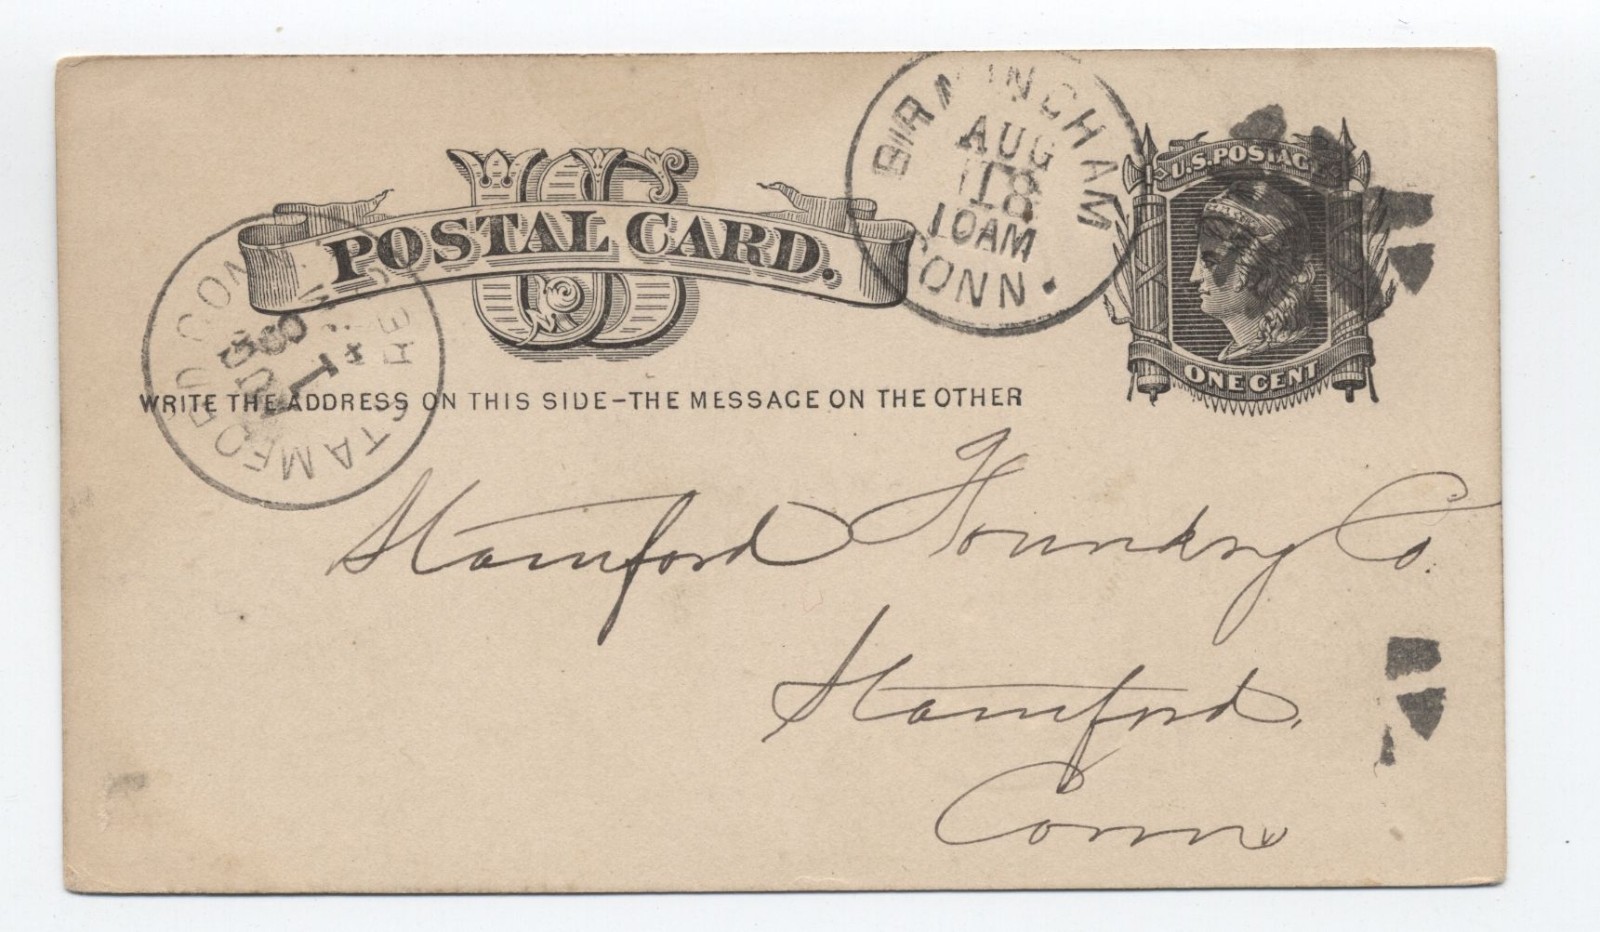 BIRMINGHAM
AUG
18
10AM
CONN.
U.S. POSTAGE
US
POSTAL CARD.
ONE CENT
STAMFORD CONN
AUG
18
WRITE THE ADDRESS ON THIS SIDE-THE MESSAGE ON THE OTHER
Stamford Foundry Co.
Stamford,
Conn